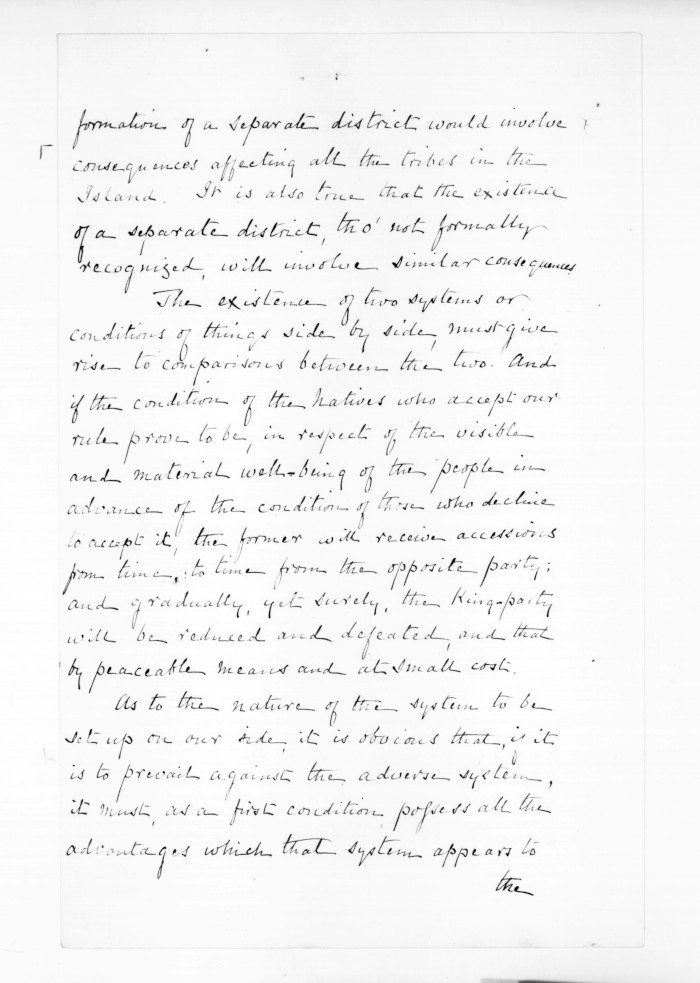 formation of a separate district would involve
consequences affecting all the tribes in the
Island. It is also true that the existence
of a separate district, tho' not formally
recognized, will involve similar consequences
The existence of two systems or
conditions of things side by side, must give
rise to comparisons between the two. And
if the condition of the Natives who accept our
rule prove to be, in respect of the visible
and material well-being of the people in
advance of the condition of those who decline
to accept it, the former will receive accessions
from time, to time from the opposite party;
and gradually, yet surely, the King-party
will be reduced and defeated, and that
by peaceable means and at small cost.
As to the nature of the system to be
set up on our side, it is obvious that, if it
is to prevail against the adverse system,
it must, as a first condition, possess all the
advantages which that system appears to
the